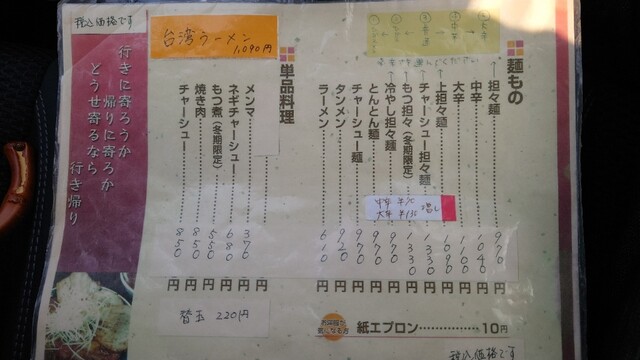 税込価格です
行きに寄ろうか
帰りに寄ろか
どうせ寄るなら
行き帰り
台湾ラーメン
1,090円
麺もの
担々麺 970円
中辛 1040円
大辛 1100円
上担々麺 1090円
チャーシュー担々麺 1330円
もつ担々(冬期限定) 1330円
冷やし担々麺 970円
とんとん麺 970円
チャーシュー麺 970円
タンメン 920円
ラーメン 610円
中辛 ¥70
大辛 ¥130
増し
単品料理
円
メンマ 370円
ネギチャーシュー 680円
もつ煮(冬期限定) 550円
焼き肉 850円
チャーシュー 850円
替玉 220円
お洋服が
気になる方
紙エプロン 10円
税込価格です